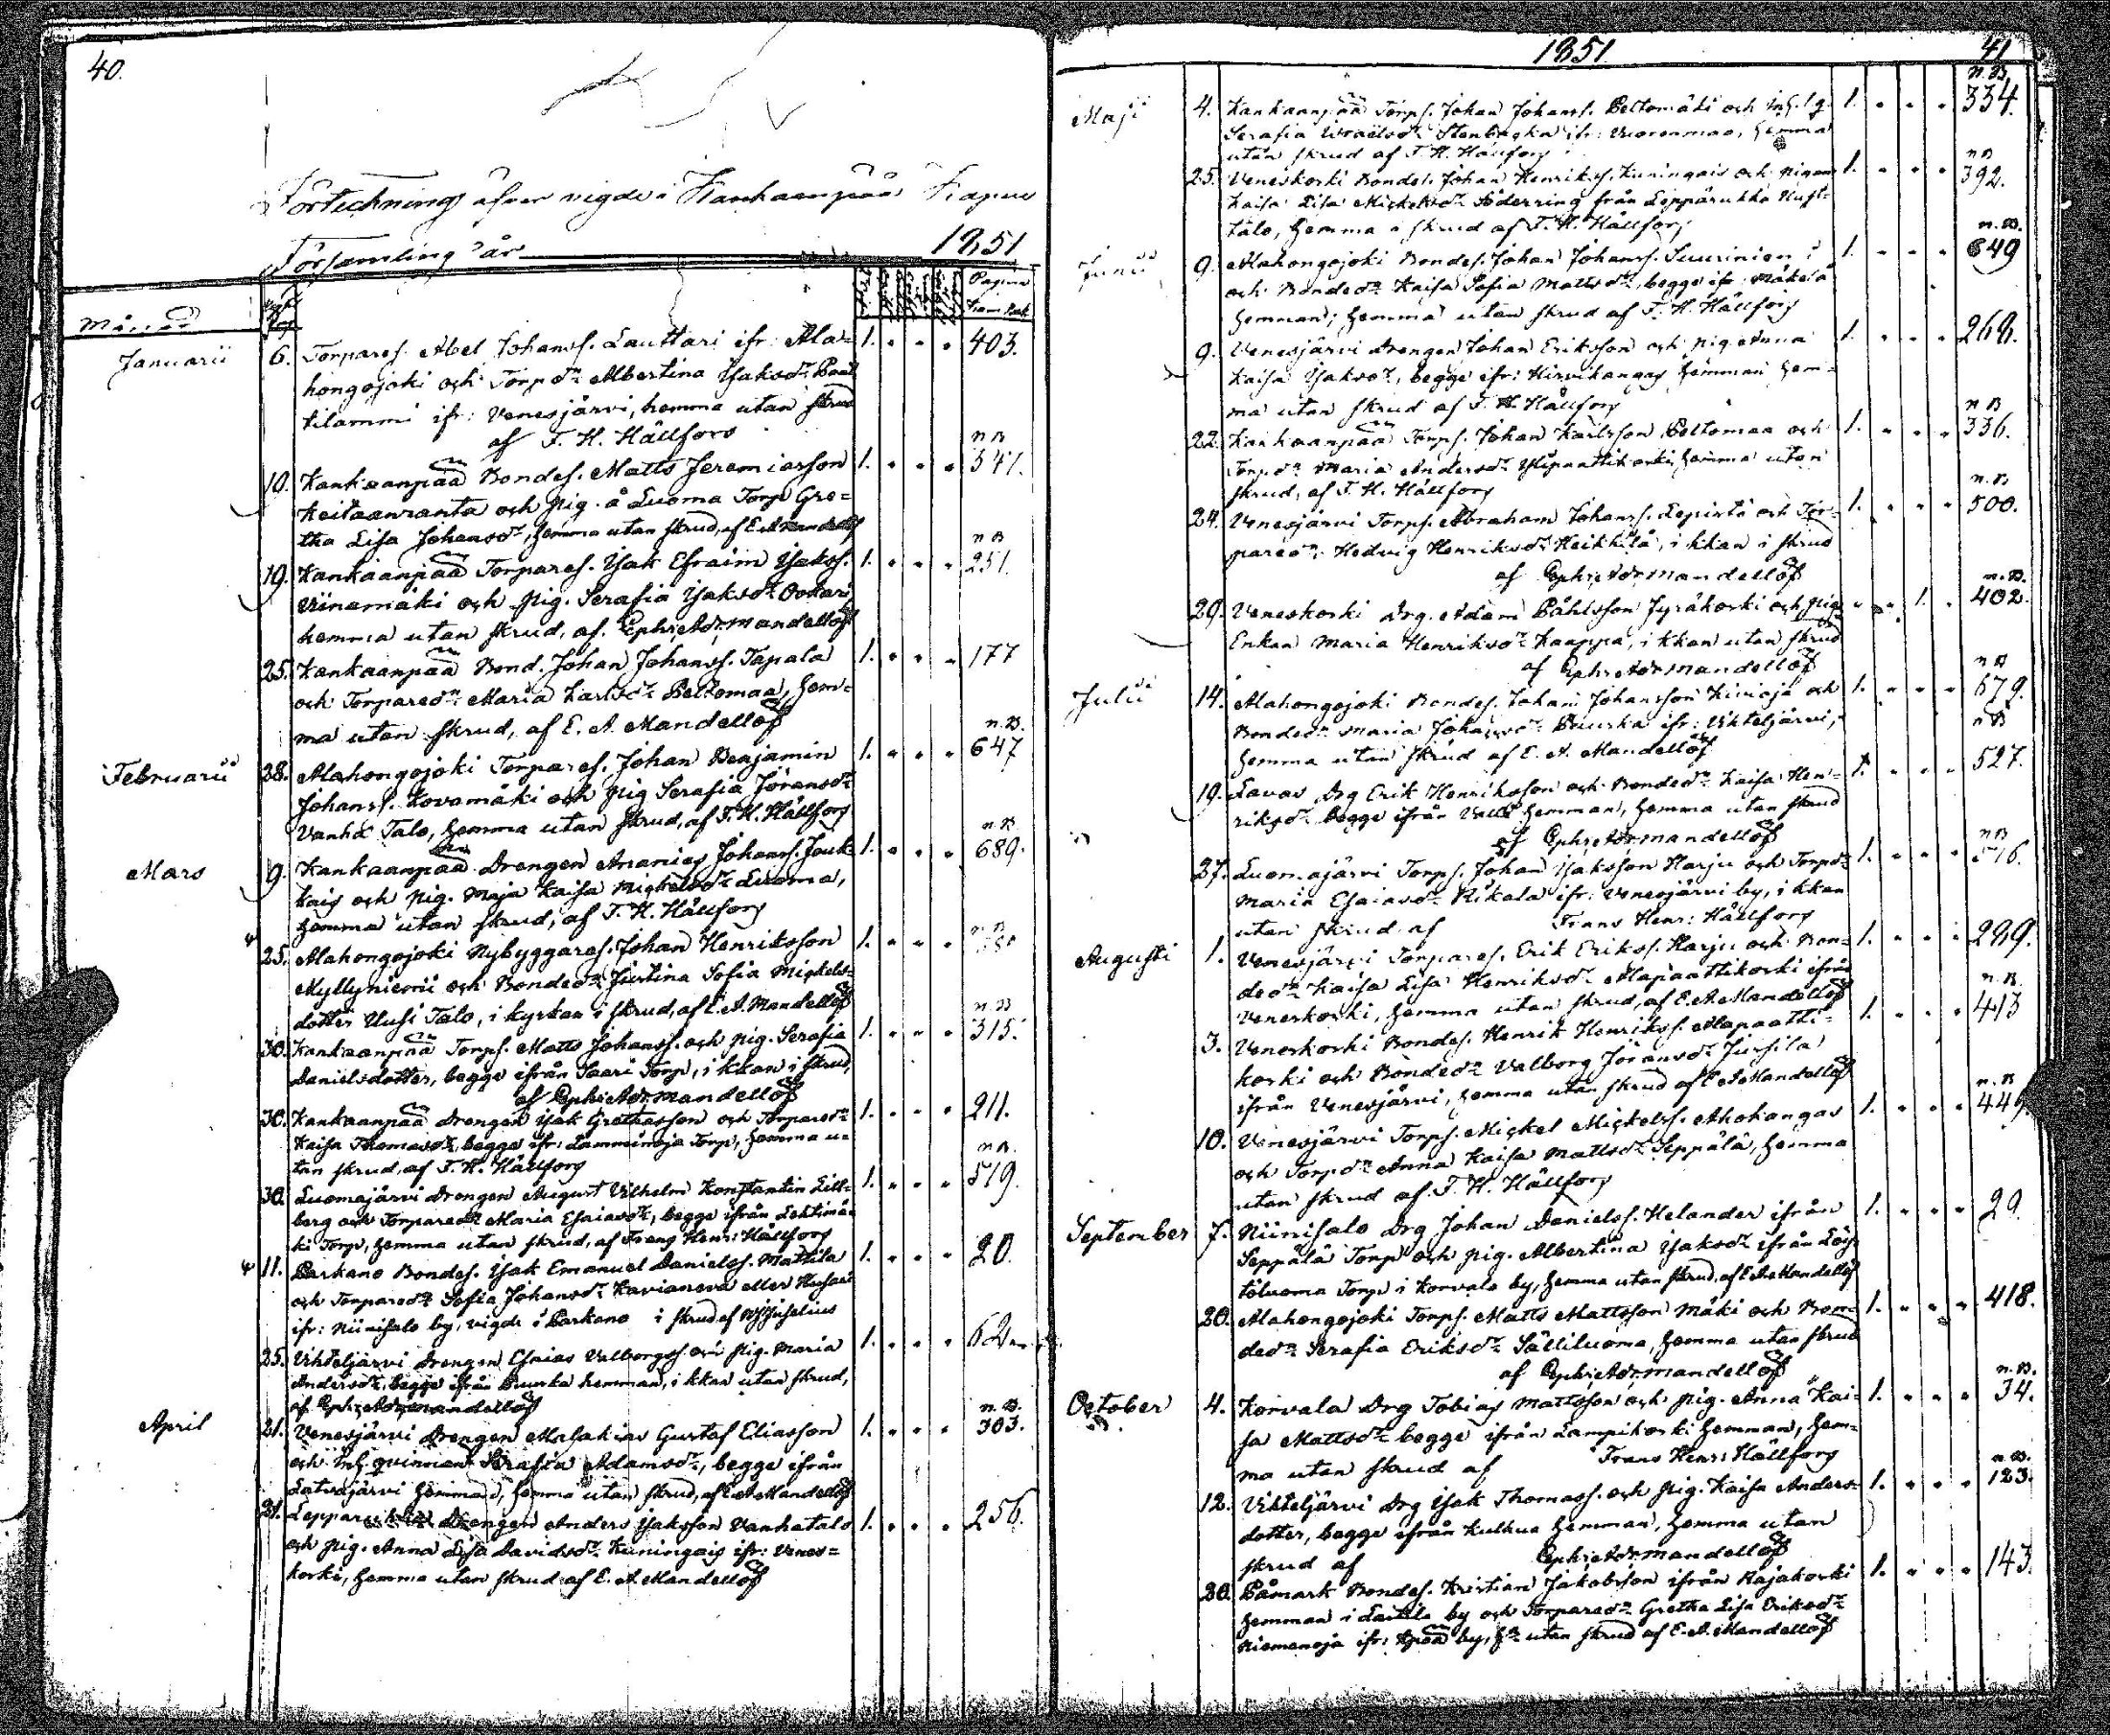 40.
Förteckning öfver vigde i Kankaanpää Kapell
Församling år 1851
Månad Pagina
Januarii 6. Torpares. Abel Johanss. Lauttari ifr: Ala- 1. 403.
hongojoki och Torpdr Albertina Isaksdr
lammi ifr: Venesjärvi, hemma utan skrud
af F. H. Hällfors n B
10. Kankaanpää Bondes. Matts Jeremiasson 1. 347.
Keitaanranta och pig. å Luoma Torp Gre-
tha Lisa Johansdr, hemma utan skrud, af E. A Mandellöf n B
19. Kankaanpää Torpares. Isak Efraim Isakss. 1. 251.
Viinamäki och pig. Serafia Isaksdr
hemma utan skrud, af Mandellöf
25. Kankaanpää Bond. Johan Johanss. Tapala 1. 177
och Torparedr Maria Karlsdr Peltomaa, hem-
ma utan skrud, af E. A. Mandellöf n. B.
Februarii 28. Alahongojoki Torpares. Johan Benjamin 1. 647
Johanss. Kovamäki och pig Serafia Jöransdr
Vanha Talo, hemma utan skrud, af F. H. Hällfors n. B
Mars 9. Kankaanpää Drengen Ananias Johanss. Jouk- 1. 689.
kais och pig. Maja Kaisa Mickelsdr Luoma,
hemma utan skrud, af F. H. Hällfors
25. Alahongojoki Nybyggares. Johan Henriksson 1.
Myllyniemi och Bondedr Justina Sofia Mickels-
dotter Uusi Talo, i kyrkan i skrud, af E. A. Mandellöf n. B
30. Kankaanpää Torps. Matts Johanss. och pig. Serafia 1. 315.
Danielsdotter, begge ifrån Saari Torp, i kkan i skrud,
af Mandellöf
30. Kankaanpää Drengen Isak Grethasson och Torparedr 1. 211.
Kaisa Thomasdr, begge ifr: Lamminoja Torp, hemma u-
tan skrud, af F. H. Hällfors n B.
30. Luomajärvi Drengen August Vilhelm Konstantin Lill- 1. 519.
berg och Torparedr Maria Esaiasdr, begge ifrån Lehtimä-
ki Torp, hemma utan skrud, af Frans Henr: Hällfors
11. Parkano Bondes. Isak Emanuel Daniels. Mattila 1. 20.
och Torparedr Sofia Johansdr Kavianeva eller
ifr: Niinisalo by, vigde i Parkano i skrud af
25. Vihteljärvi Drengen Esaias Valborgss. och pig. Maria 1. 62
Andersdr, begge ifrån Puurka hemman, i kkan utan skrud,
af Mandellöf n. B.
April 21. Venesjärvi Drengen Malakias Gustaf Eliasson 1. 303.
och Inh. quinnan Serafia Adamsdr, begge ifrån
Latvajärvi hemman, hemma utan skrud, af E. A Mandellöf
21. Leppärukka Drengen Anders Isaksson Vanhatalo 1. 256.
och pig. Anna Lisa Davidsdr Kuningais ifr: Venes-
koski, hemma utan skrud af E. A Mandellöf
1851 41
n. B.
Maji 4. Kankaanpää Torps. Johan Johanss. Peltomäki och Inh. q. 1. 334.
Serafia Israëlsdr Stenbacka ifr: Vuorenmaa, hemma
utan skrud af F. H. Hällfors n B
25. Veneskoski Bondes. Johan Henrikss. Kuningais och pigan 1. 392.
Kaisa Lisa Mickelsdr Söderring från Leppärukka
talo, hemma i skrud af F. H. Hällfors n. B.
Junii 9. Alahongojoki Bondes. Johan Johanss. Suurinien 1. 649
och Bondedr Kaisa Sofia Mattsdr, begge ifr: Mäkelä
hemman, hemma utan skrud af F. H. Hällfors
9. Venesjärvi Drengen Johan Eriksson och pig. Anna 1. 268.
Kaisa Isaksdr, begge ifr: Hirvikangas hemman hem-
ma utan skrud af F. H. Hällfors n B
22. Kankaanpää Torps. Johan Karlsson Peltomaa och 1. 336.
Torpdr Maria Andersdr Ylipaattikoski, hemma utan
skrud, af F. H. Hällfors n. B
24. Venesjärvi Torps. Abraham Johanss. Lepistö och Tor- 1. 500.
paredr Hedvig Henriksdr Heikkilä, i kkan i skrud
af Mandellöf n. B.
29. Veneskoski Drg. Adam Påhlsson Jyräkoski och pig. 1. 402.
Enkan Maria Henriksdr Kaappa, i kkan utan skrud
af Mandellöf n B
Julii 14. Alahongojoki Bondes. Johan Johansson Kivioja och 1. 679.
Bondedr Maria Johansdr Puurka ifr: Vihteljärvi, n B
hemma utan skrud af E. A. Mandellöf
19. Lavas Drg Erik Henriksson och Bondedr Kaisa Hen- 1. 527.
riksdr begge ifrån Valli hemman, hemma utan skrud
af Mandellöf n B
27. Luomajärvi Torps. Johan Isaksson Harju och Torpdr 1.
Maria Esaiasdr Rikala ifr: Venesjärvi by, i kkan
utan skrud af Frans Henr: Hällfors
Augusti 1. Venesjärvi Torpares. Erik Erikss. Harju och Bon- 1. 289.
dedr Kaisa Lisa Henriksdr Alapaattikoski ifrån n. B.
Veneskoski, hemma utan skrud, af E. A Mandellöf
3. Veneskoski Bondes. Henrik Henrikss. Alapaatti- 1. 413
koski och Bondedr Valborg Jöransdr Jussila
ifrån Venesjärvi, hemma utan skrud af E A Mandellöf n. B
10. Venesjärvi Torps. Mickel Mickelss. Ahokangas 1. 449.
och Torpdr Anna Kaisa Mattsdr Seppälä, hemma
utan skrud af F. H. Hällfors
September 7. Niinisalo Drg Johan Daniels. Helander ifrån 1. 29.
Seppälä Torp och pig. Albertina Isaksdr ifrån
töluoma Torp i Korvala by, hemma utan skrud, af E A Mandellöf
20. Alahongojoki Torps. Matts Mattsson Mäki och Bon- 1. 418.
dedr Serafia Eriksdr Sälliluoma, hemma utan skrud
af Mandellöf n. B.
October 4. Korvala Drg Tobias Mattsson och pig. Anna Kai- 1. 34.
sa Mattsdr begge ifrån Lampikoski hemman, hem-
ma utan skrud af Frans Henr: Hällfors n. B.
12. Vihteljärvi Drg Isak Thomass. och pig. Kaisa Anders- 1. 123.
dotter, begge ifrån Kulkua hemman, hemma utan
skrud af Mandellöf
20. Påmark Bondes. Kristian Jakobsson ifrån Rajakoski 1. 143.
hemman i by och Torparedr Gretha Lisa Eriksdr
Niemenoja ifr: by, utan skrud af E. A. Mandellöf